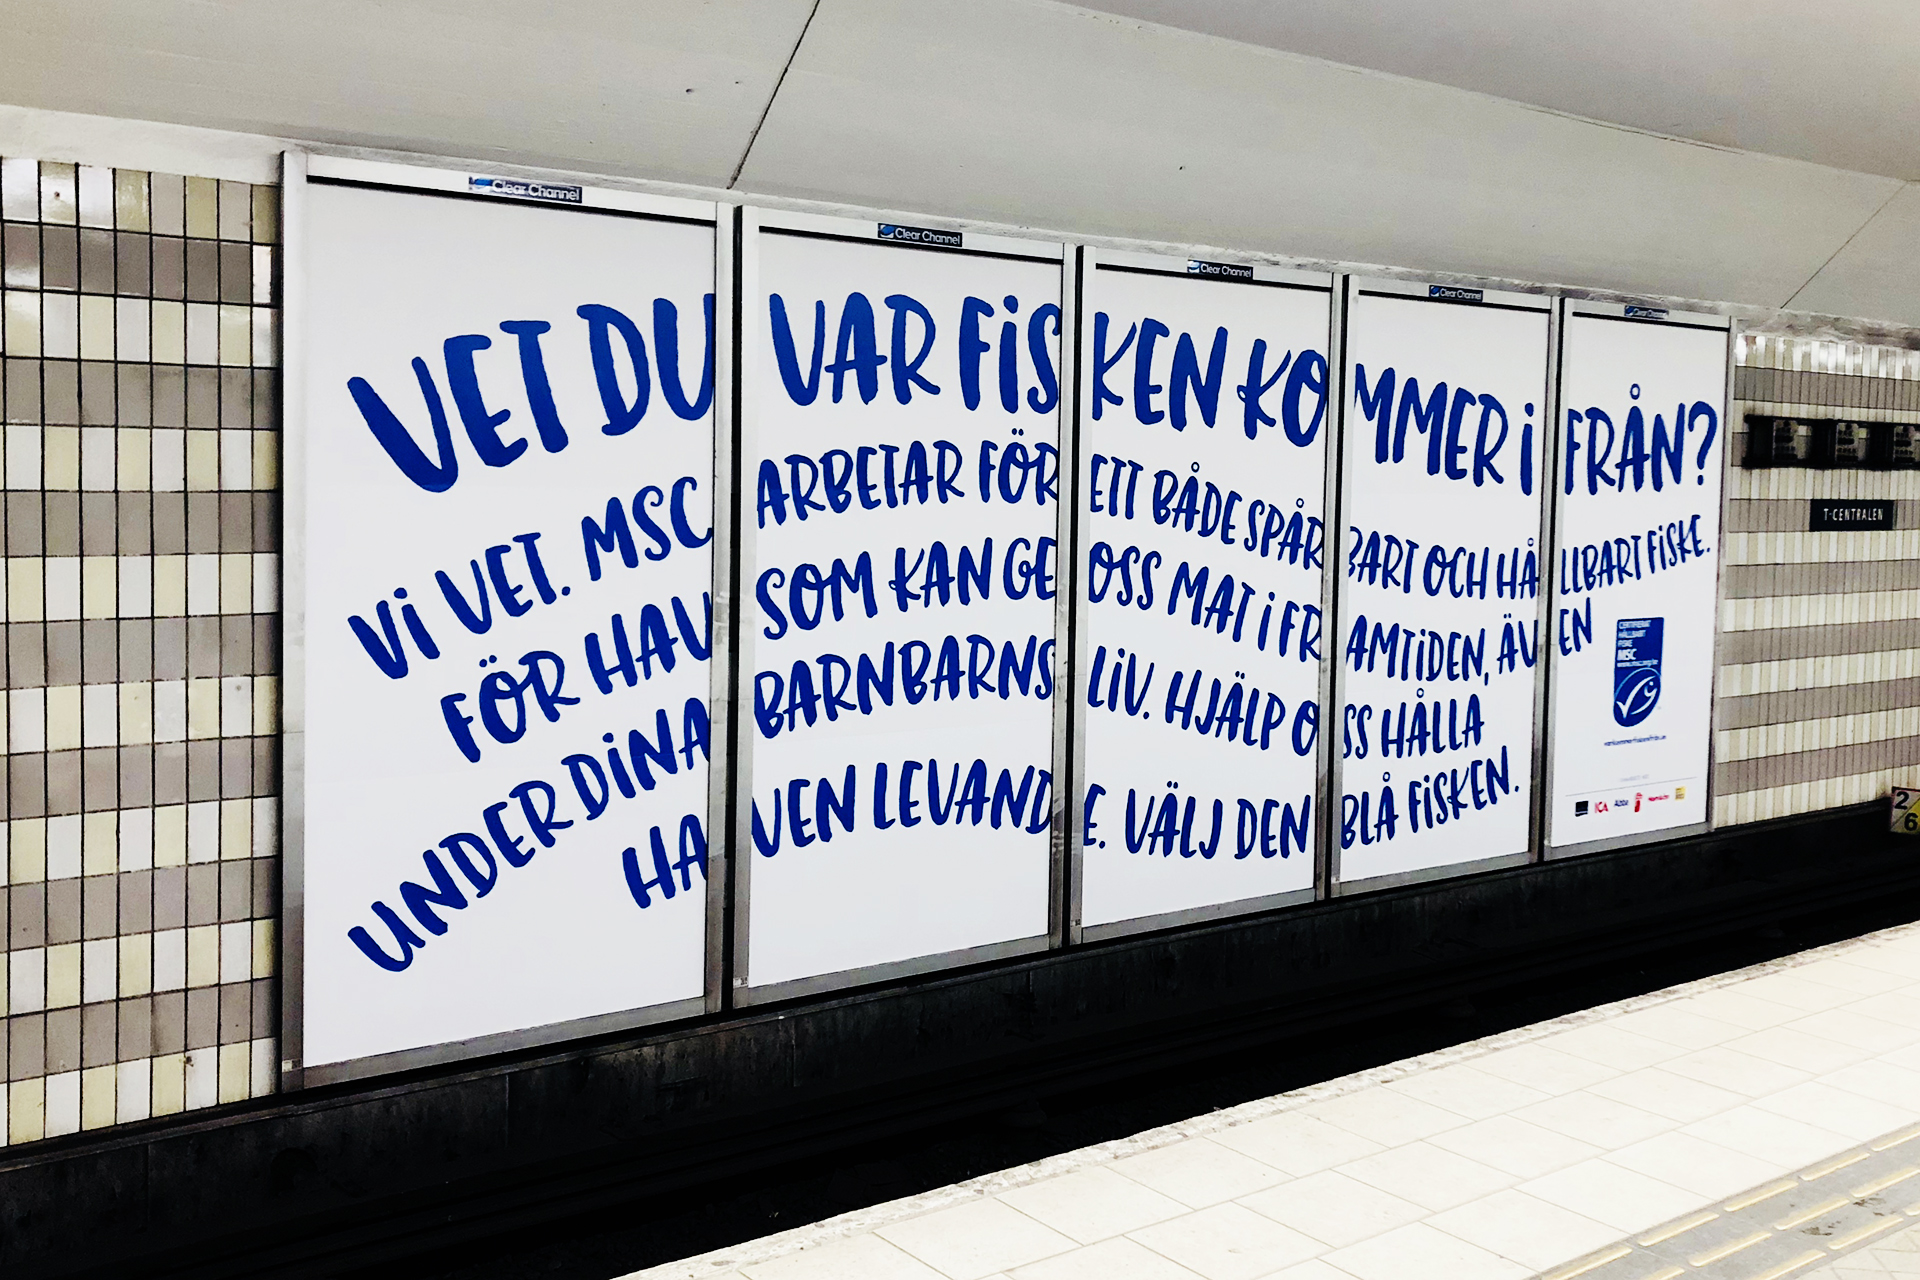 Clear Channel
Clear Channel
Clear Channel
Clear Channel
Clear Channel
VET DU VAR FISKEN KOMMER IFRÅN?
VI VET. MSC ARBETAR FÖR ETT BÅDE SPÅRBART OCH HÅLLBART FISKE.
FÖR HAV SOM KAN GE OSS MAT I FRAMTIDEN, ÄVEN
UNDER DINA BARNBARNS LIV. HJÄLP OSS HÅLLA
HAVEN LEVANDE. VÄLJ DEN BLÅ FISKEN.
CERTIFIERAT
HÅLLBART
FISKE
MSC
www.msc.org/se
ICA
Abba
T-CENTRALEN
2
6